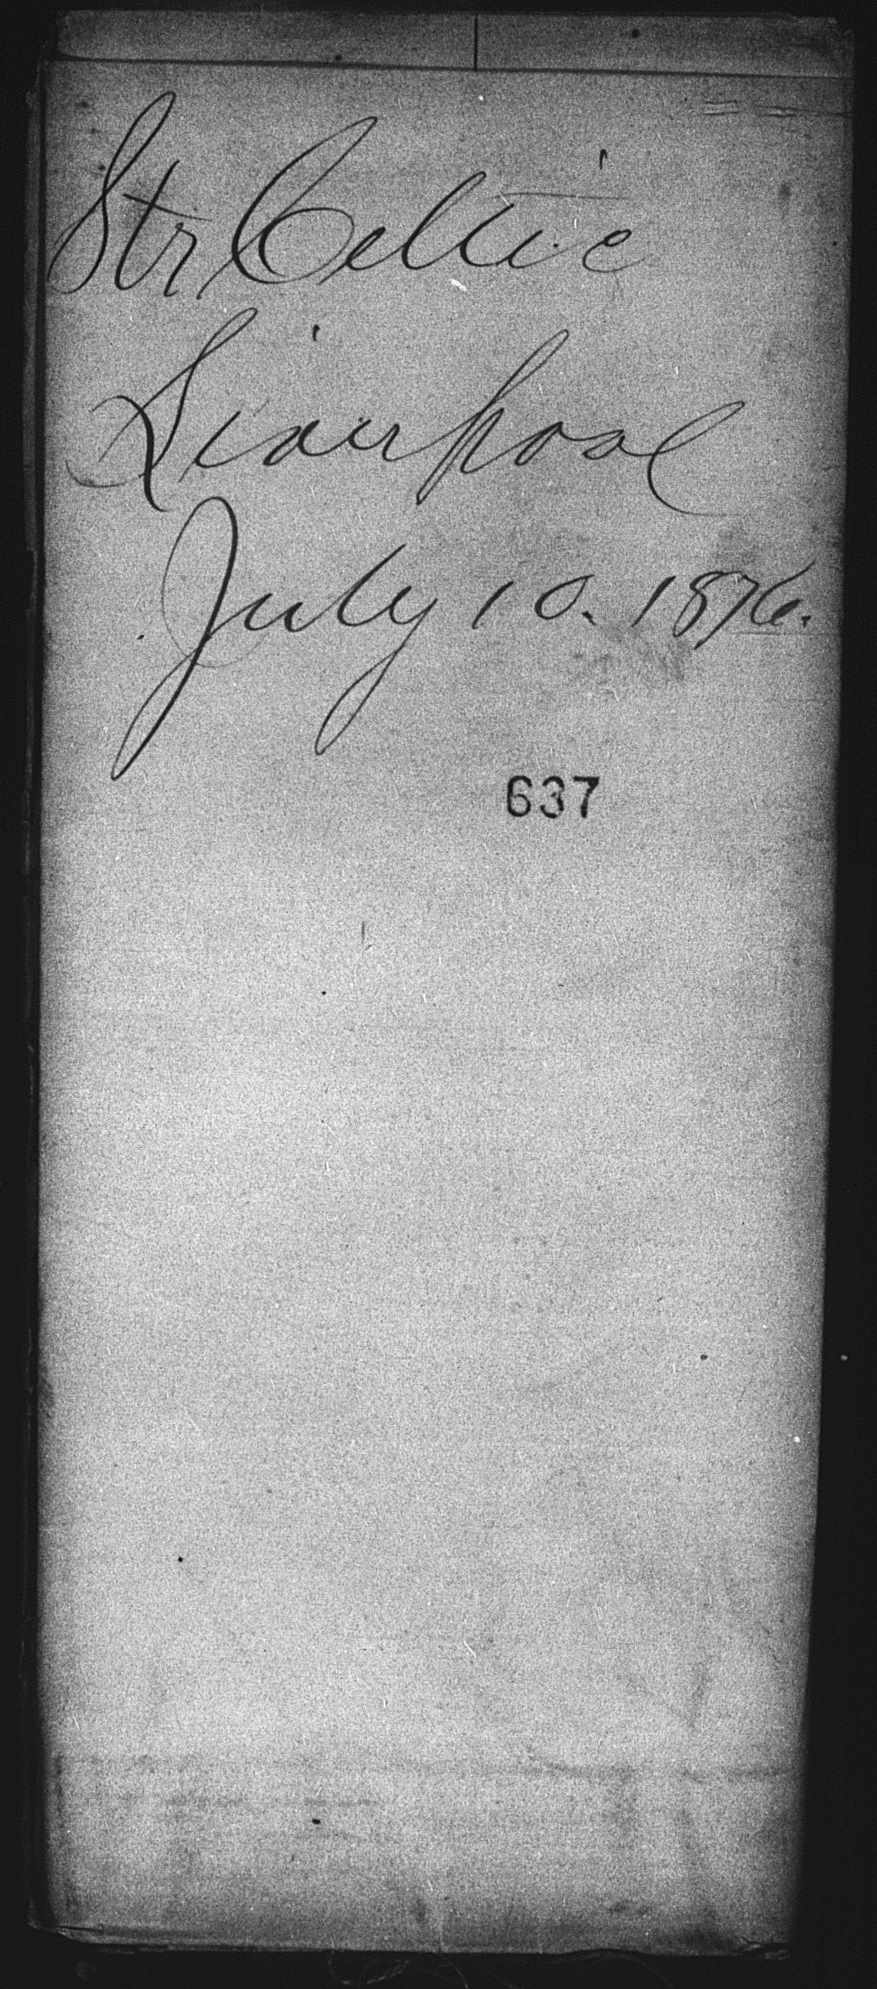 Str Celtic
Liverpool
July 10. 1876.
637